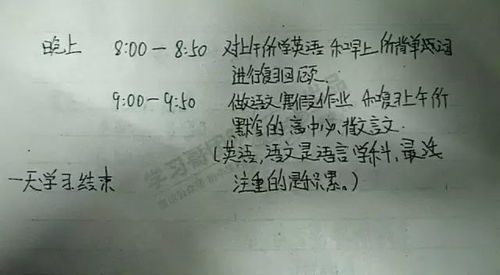 晚上 8:00-8:50 对上午所学英语和早上所背单词
进行复习回顾
9:00-9:50 做语文寒假作业和复习上午所
默写的高中必背文言文.
(英语,语文是语言学科,最注
一天学习结束 注重的是积累。)